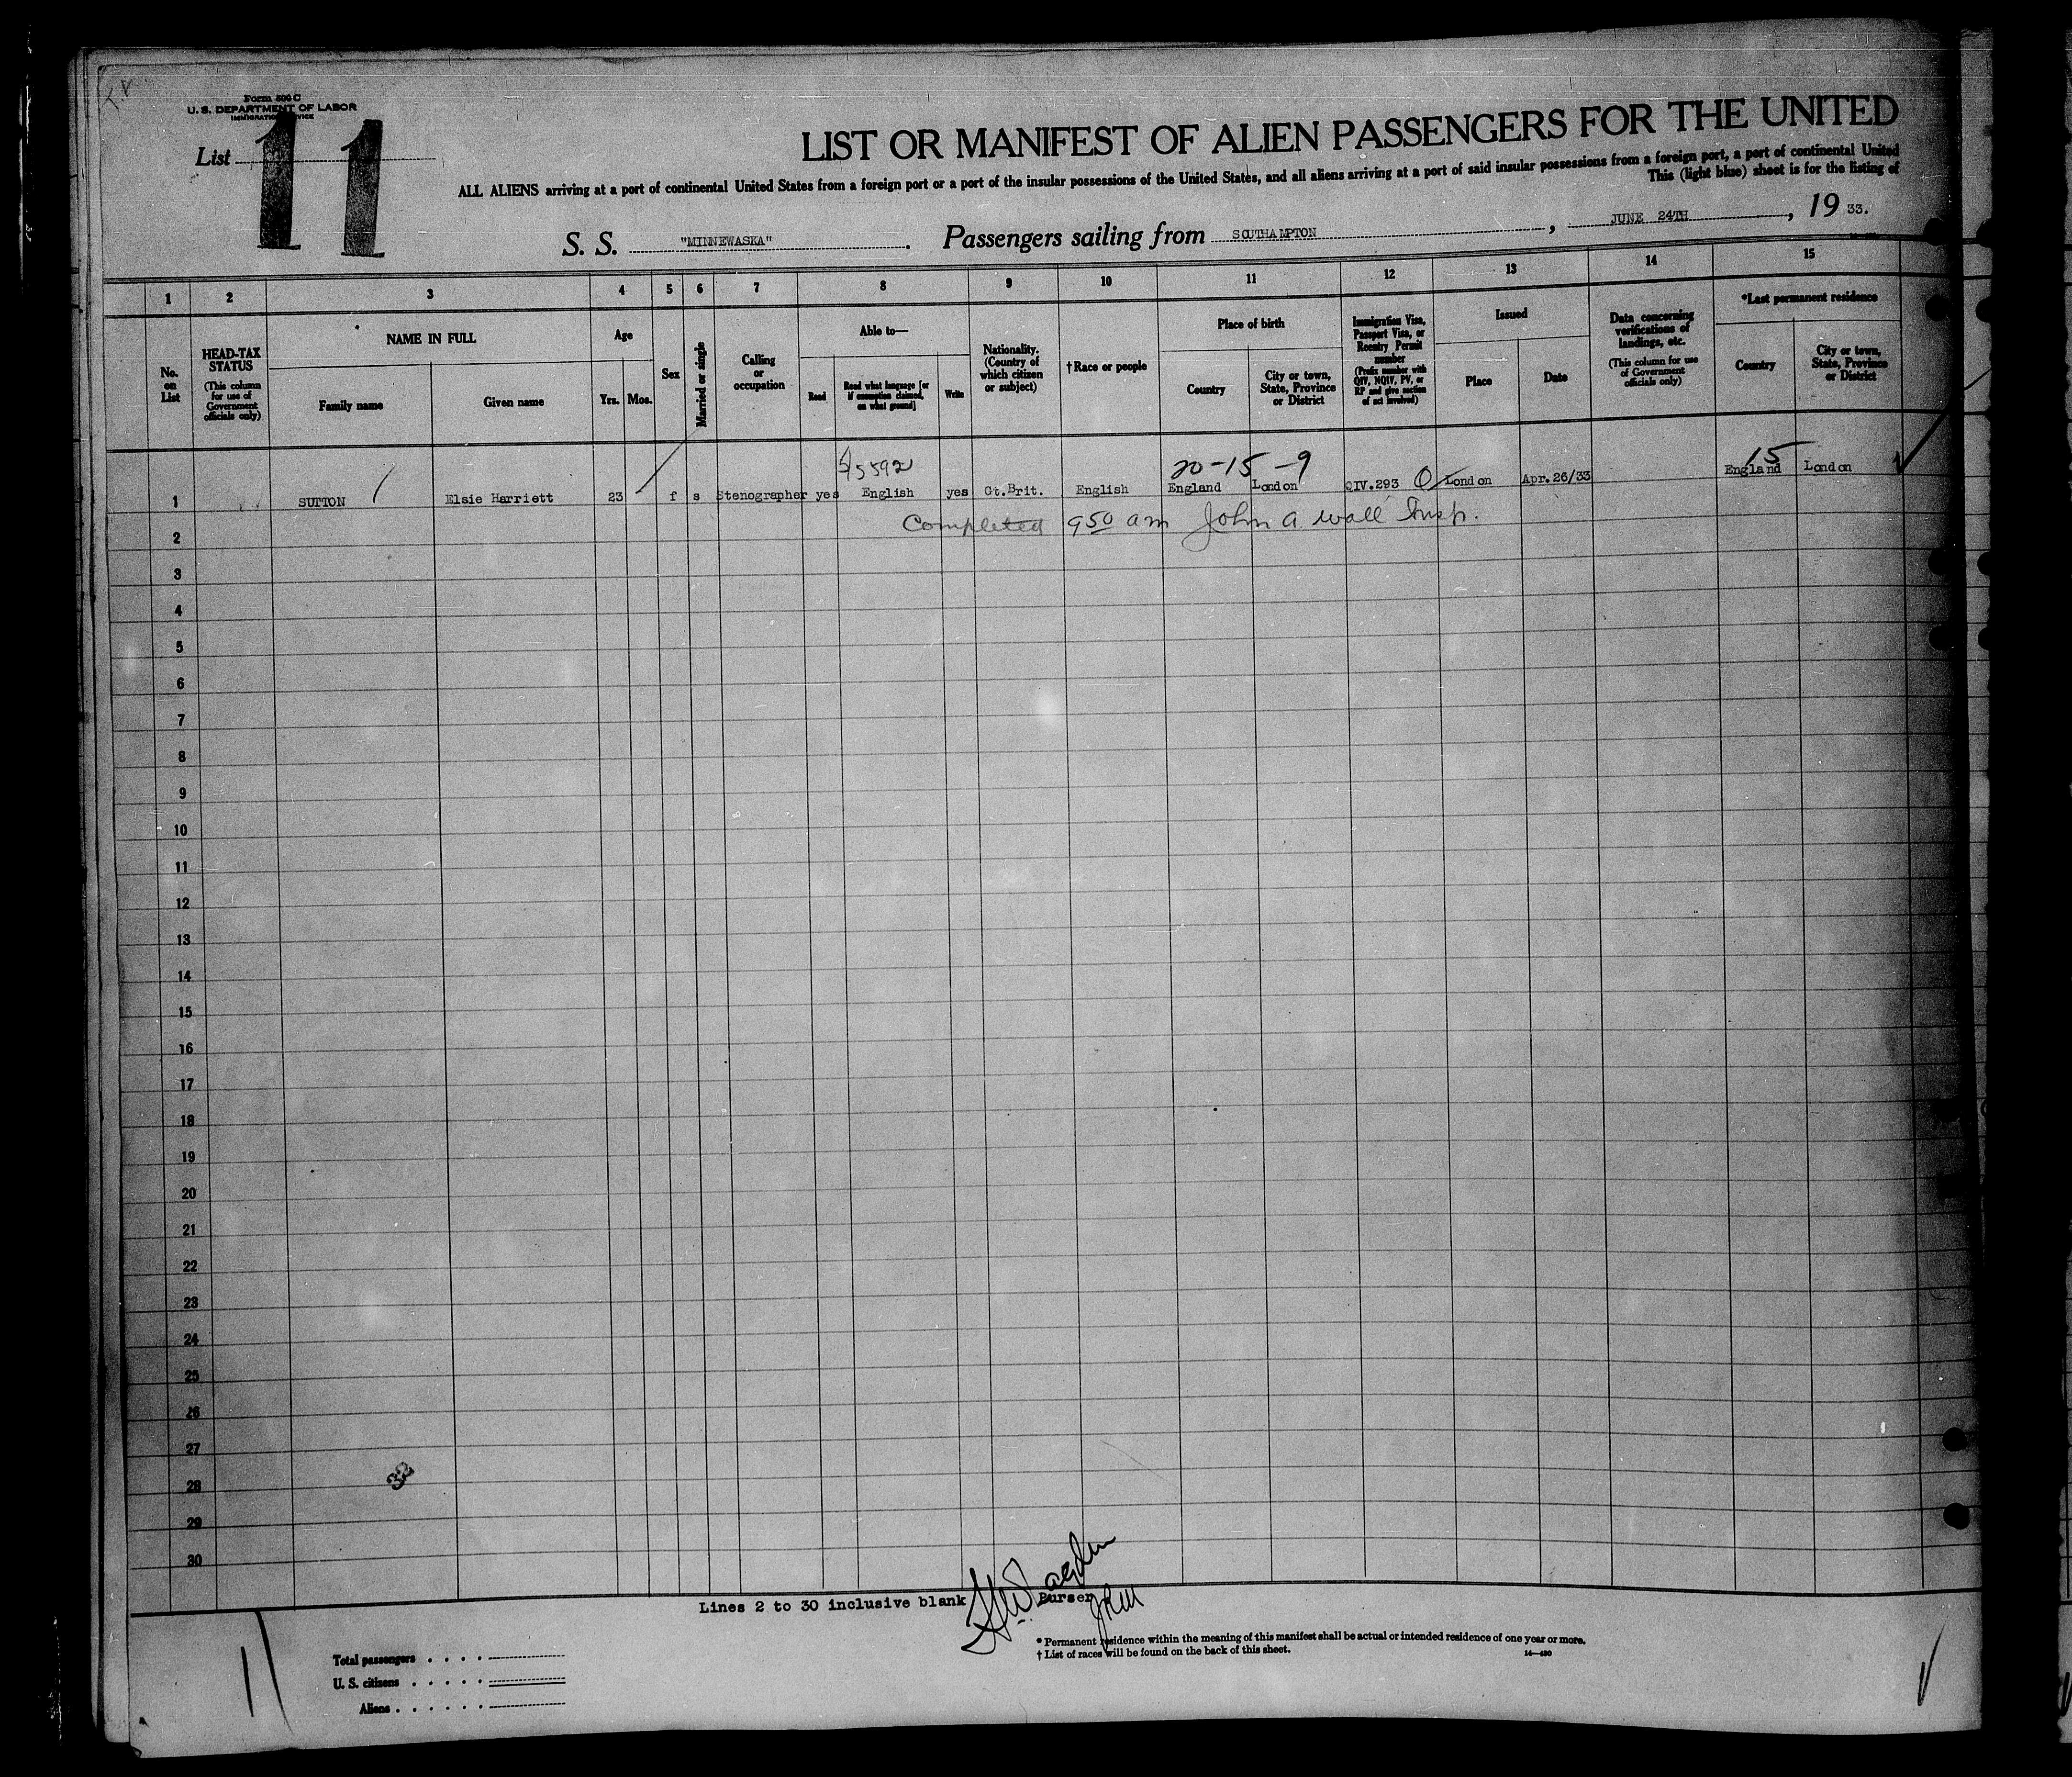 Form 500 C
U. S. DEPARTMENT OF LABOR
IMMIGRATION SERVICE
List 11
LIST OR MANIFEST OF ALIEN PASSENGERS FOR THE UNITED
ALL ALIENS arriving at a port of continental United States from a foreign port or a port of the insular possessions of the United States, and all aliens arriving at a port of said insular possessions from a foreign port, a port of continental United
This (light blue) sheet is for the listing of
S. S. "MINNEWASKA". Passengers sailing from SOUTHAMPTON, JUNE 24TH, 19 33.
1 2 3 4 5 6 7 8 9 10 11 12 13 14 15
No. on List
HEAD-TAX STATUS
(This column for use of Government officials only)
NAME IN FULL
Family name
Given name
Age
Yrs.
Mos.
Sex
Married or single
Calling or occupation
Able to—
Read
Read what language [or if exemption claimed, on what ground]
Write
Nationality. (Country of which citizen or subject)
†Race or people
Place of birth
Country
City or town, State, Province or District
Immigration Visa, Passport Visa, or Reentry Permit number
(Prefix number with QIV, NQIV, PV, or RP and give section of act involved)
Issued
Place
Date
Data concerning verifications of landings, etc.
(This column for use of Government officials only)
*Last permanent residence
Country
City or town, State, Province or District
5592 20-15-9 15
1 SUTTON Elsie Harriett 23 f s Stenographer yes English yes Gt.Brit. English England London QIV.293 London Apr.26/33 England London
Completed 950 am John A. Wall Insp.
2
3
4
5
6
7
8
9
10
11
12
13
14
15
16
17
18
19
20
21
22
23
24
25
26
27
28
29
30
32
Lines 2 to 30 inclusive blank
Purser
* Permanent residence within the meaning of this manifest shall be actual or intended residence of one year or more.
† List of races will be found on the back of this sheet.
14—480
Total passengers
U. S. citizens
Aliens
11